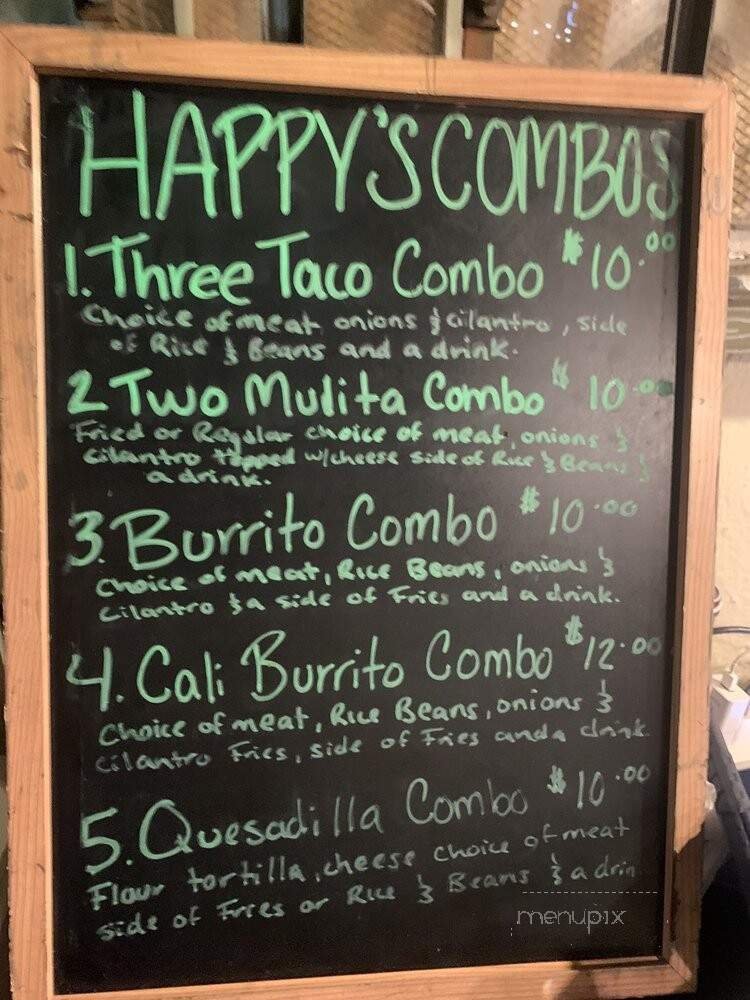 HAPPY'S COMBOS
1. Three Taco Combo $10.00
Choice of meat onions & cilantro, side
of Rice & Beans and a drink.
2 Two Mulita Combo $10.00
Fried or Regular choice of meat, onions &
cilantro topped w/cheese side of Rice & Beans &
a drink.
3. Burrito Combo $10.00
Choice of meat, Rice Beans, onions &
cilantro & a side of Fries and a drink.
4. Cali Burrito Combo $12.00
Choice of meat, Rice Beans, onions &
cilantro Fries, side of Fries and a drink
5. Quesadilla Combo $10.00
Flour tortilla, cheese choice of meat
side of Fries or Rice & Beans & a drin
menupix